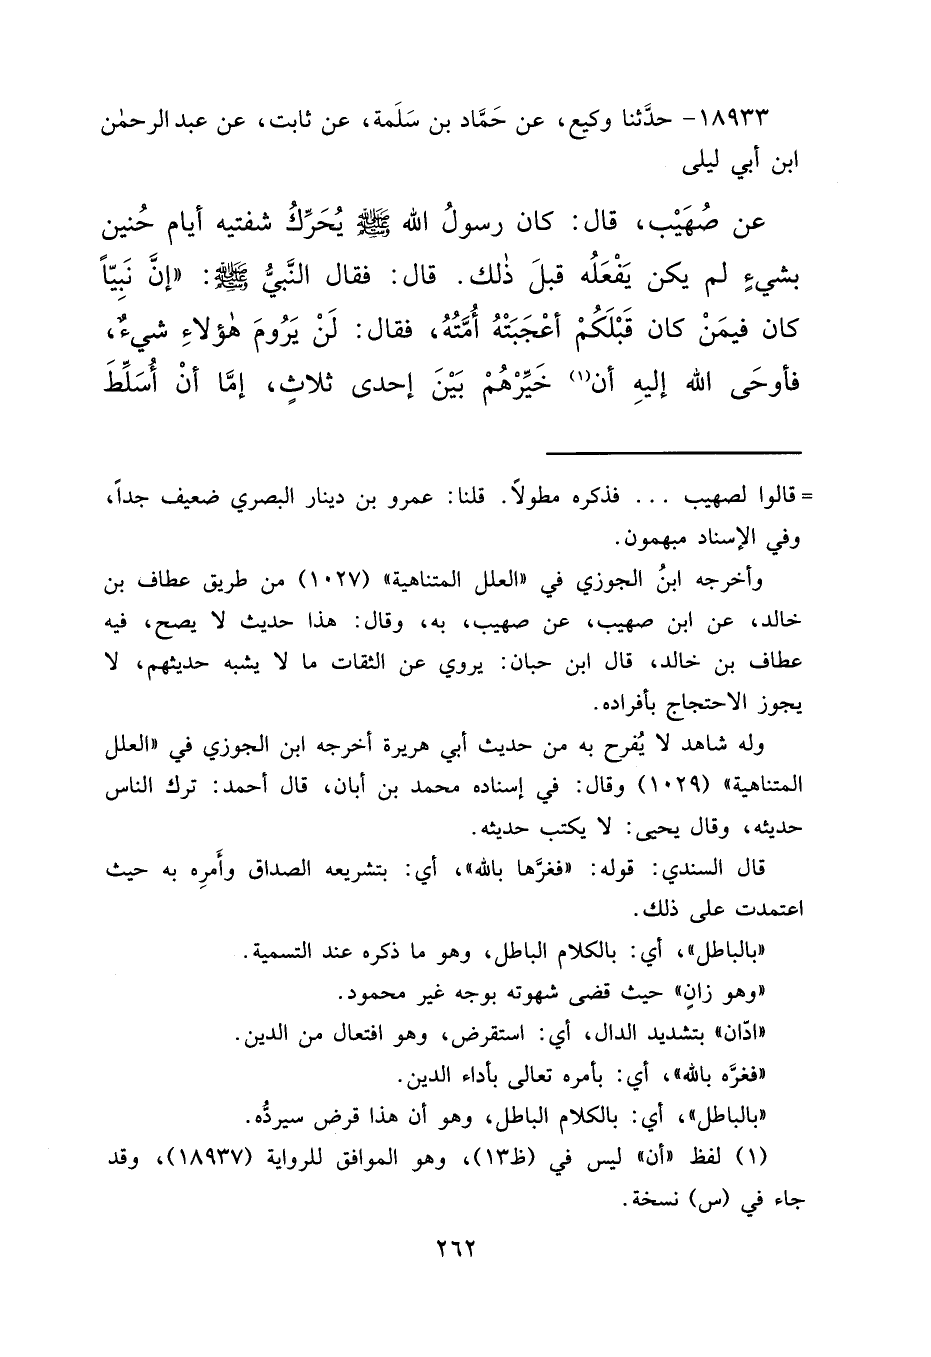 ١٨٩٣٣- حدَّثنا وكيع، عن حَمَّاد بن سَلَمة، عن ثابت، عن عبد الرحمٰن
ابن أبي ليلى
عن صُهَيْب، قال: كان رسولُ الله ﷺ يُحَرِّكُ شفتيه أيام حُنين
بشيءٍ لم يكن يَفْعَلُه قبلَ ذٰلك. قال: فقال النَّبيُّ ﷺ: «إنَّ نَبِيّاً
كان فيمَنْ كان قَبْلَكُمْ أعْجَبَتْهُ أُمَّتُهُ، فقال: لَنْ يَرُومَ هٰؤلاءِ شيءٌ،
فأوحَى الله إليهِ أن(١) خَيِّرْهُمْ بَيْنَ إحدى ثلاثٍ، إمَّا أنْ أُسَلِّطَ
= قالوا لصهيب ... فذكره مطولاً. قلنا: عمرو بن دينار البصري ضعيف جداً،
وفي الإسناد مبهمون.
وأخرجه ابنُ الجوزي في «العلل المتناهية» (١٠٢٧) من طريق عطاف بن
خالد، عن ابن صهيب، عن صهيب، به، وقال: هذا حديث لا يصح، فيه
عطاف بن خالد، قال ابن حبان: يروي عن الثقات ما لا يشبه حديثهم، لا
يجوز الاحتجاج بأفراده.
وله شاهد لا يُفرح به من حديث أبي هريرة أخرجه ابن الجوزي في «العلل
المتناهية» (١٠٢٩) وقال: في إسناده محمد بن أبان، قال أحمد: ترك الناس
حديثه، وقال يحيى: لا يكتب حديثه.
قال السندي: قوله: «فغرَّها بالله»، أي: بتشريعه الصداق وأَمرِه به حيث
اعتمدت على ذلك.
«بالباطل»، أي: بالكلام الباطل، وهو ما ذكره عند التسمية.
«وهو زانٍ» حيث قضى شهوته بوجه غير محمود.
«ادّان» بتشديد الدال، أي: استقرض، وهو افتعال من الدين.
«فغرَّه بالله»، أي: بأمره تعالى بأداء الدين.
«بالباطل»، أي: بالكلام الباطل، وهو أن هذا قرض سيردُّه.
(١) لفظ «أن» ليس في (ظ١٣)، وهو الموافق للرواية (١٨٩٣٧)، وقد
جاء في (س) نسخة.
٢٦٢